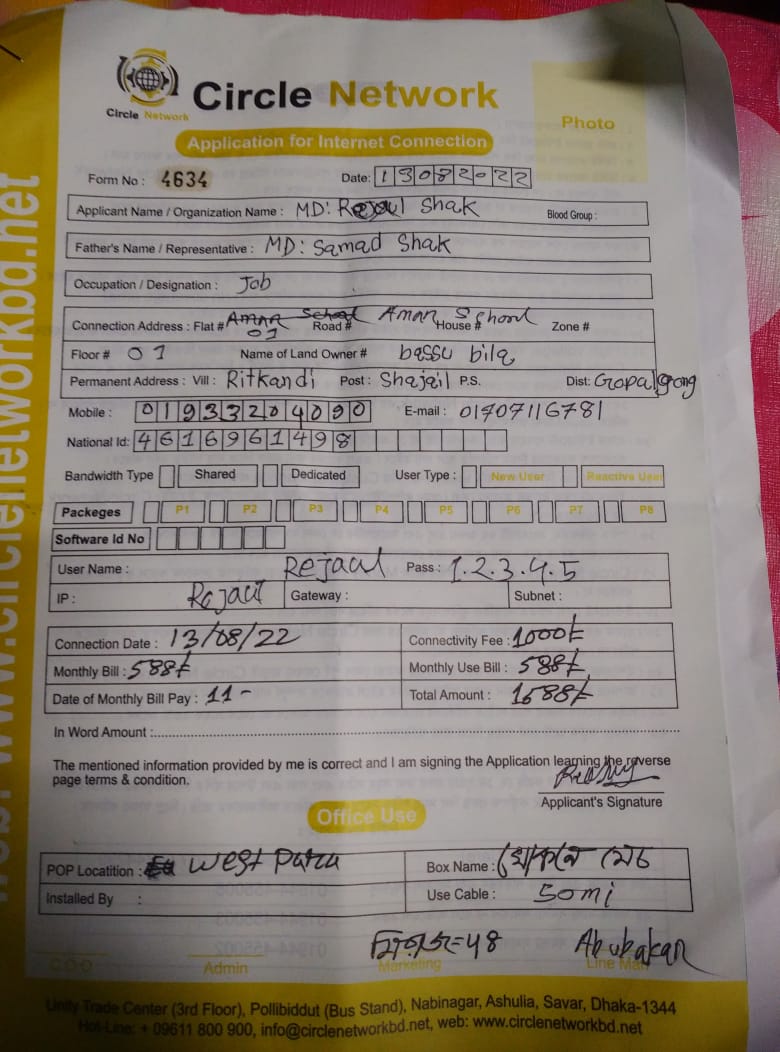 web: www.circlenetworkbd.net
Circle Network
Circle Network
Photo
Application for Internet Connection
Form No : 4634 Date: 13082022
Applicant Name / Organization Name : MD: Rejaul Shak Blood Group :
Father's Name / Representative : MD: Samad Shak
Occupation / Designation : Job
Connection Address : Flat # 01 Road # Aman School House # Zone #
Floor # 01 Name of Land Owner # bassu bila
Permanent Address : Vill : Ritkandi Post : Shajail P.S. Dist: Gopalgong
Mobile : 01933204090 E-mail : 01707116781
National Id: 4616961498
Bandwidth Type Shared Dedicated User Type : New User Reactive User
Packeges P1 P2 P3 P4 P5 P6 P7 P8
Software Id No
User Name : Rejaul Pass : 1.2.3.4.5
IP : Rejaul Gateway : Subnet :
Connection Date : 13/08/22 Connectivity Fee : 1000/-
Monthly Bill : 588/- Monthly Use Bill : 588/-
Date of Monthly Bill Pay : 11- Total Amount : 1588/-
In Word Amount :
The mentioned information provided by me is correct and I am signing the Application learning the reverse
page terms & condition.
Applicant's Signature
Office Use
POP Locatition : West Para Box Name :
Installed By : Use Cable : 50mi
=48 Abubakar
C.O.O Admin Marketing Line Man
Unity Trade Center (3rd Floor), Pollibiddut (Bus Stand), Nabinagar, Ashulia, Savar, Dhaka-1344
Hot-Line: + 09611 800 900, info@circlenetworkbd.net, web: www.circlenetworkbd.net